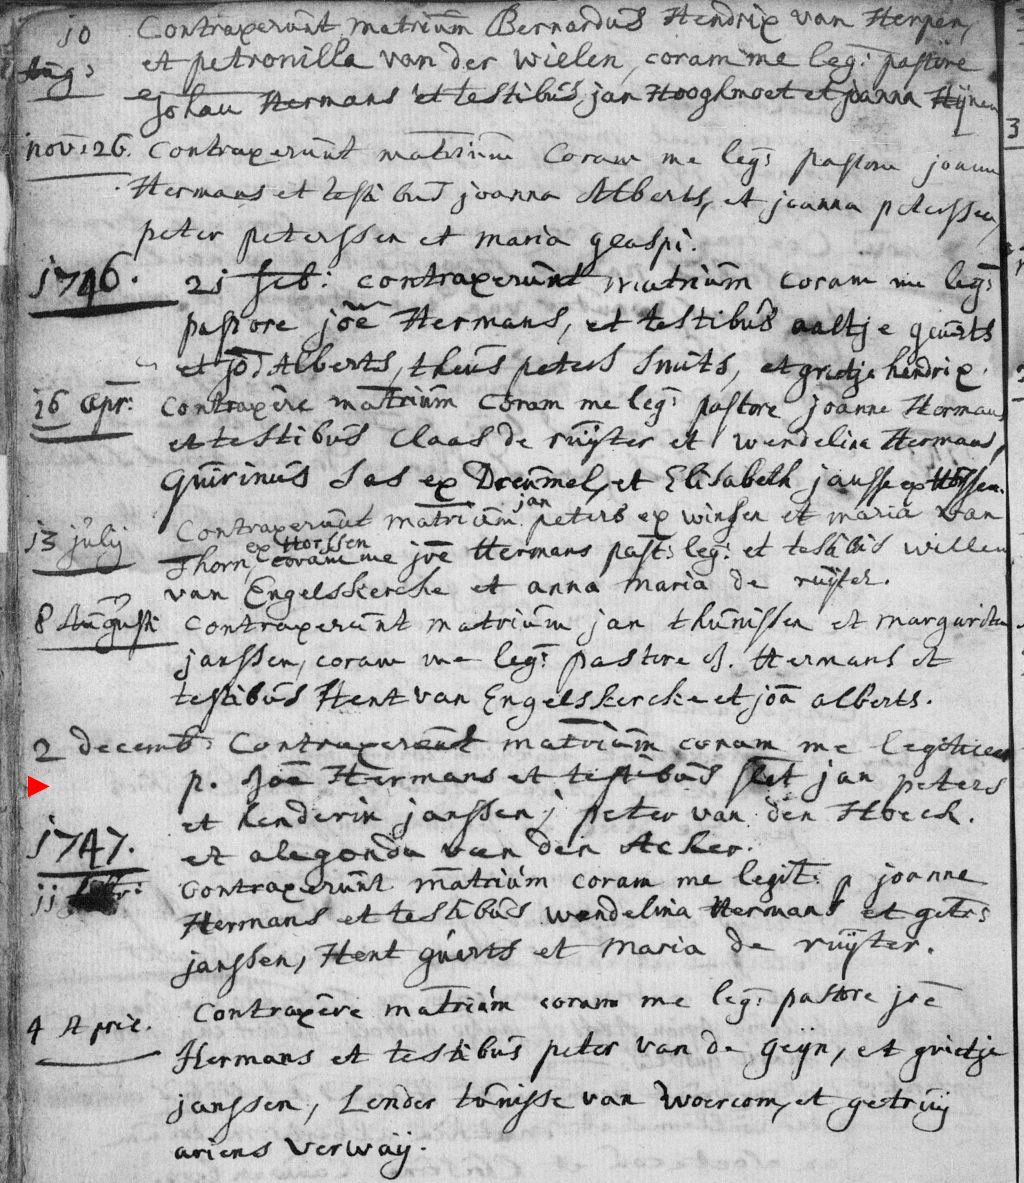 10 Contraxerunt matrium Bernardus Hendrix van Herpen,
Aug: et petronilla van der wielen, coram me leg: pastore
Johan Hermans et testibus jan Hooghmoet et joanna
nov: 26. Contraxerunt matrium Coram me leg: pastore joanne
Hermans et testibus joanna Alberts, et joanna peterssen,
peter peterssen et maria
1746. 21 feb: contraxerunt matrium coram me leg:
pastore joe Hermans, et testibus aaltje geurts
et joa Alberts, theus peters smits, et grietje hendrix.
26 apr: Contraxere matrium Coram me leg: pastore joanne Hermans
et testibus Claas de ruyter et wendelina Hermans,
Quirinus Sas ex Dreumel, et Elisabeth janssen ex Horssen.
13 july Contraxerunt matrium jan peters ex winsen et maria van
Thorn, ex Horssen coram me joe Hermans past: leg: et testibus willem
van Engelskercke et anna maria de ruyter.
8 Augusti Contraxerunt matrium jan thunissen et margarita
janssen, coram me leg: pastore J. Hermans et
testibus Hent van Engelskercke et joa alberts.
2 decemb: Contraxerunt matrium coram me legitimo
p. Joe Hermans et testibus jan peters
et henderin janssen, peter van den Hoeck.
1747. et alegonda van den Acker.
11 Contraxerunt matrium coram me legit: p joanne
Hermans et testibus wendelina Hermans et getr:
janssen, Hent guerts et maria de ruyter.
4 April. Contraxere matrium coram me leg: pastore joe
Hermans et testibus peter van de geyn, et grietje
janssen, Lender tunisse van Woercom, et getruy
ariens verway.